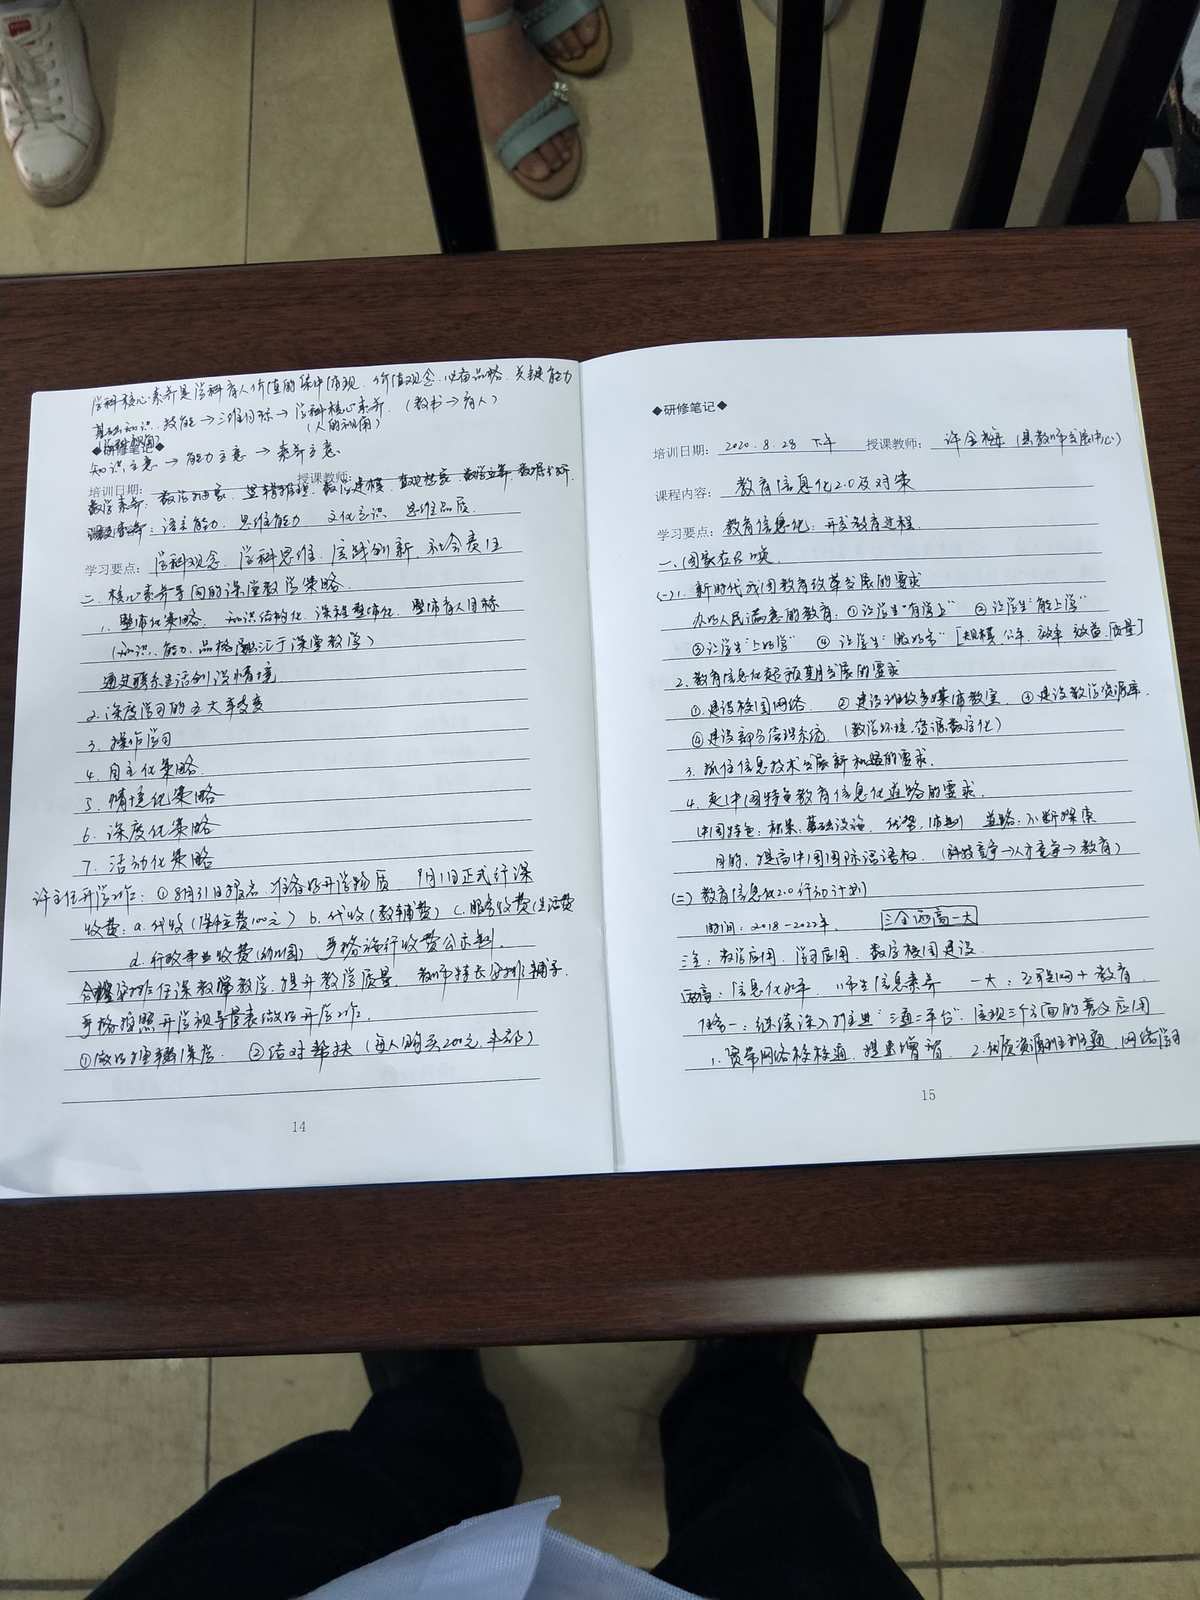 学科核心素养是学科育人价值的集中体现. 价值观念. 必备品格. 关键能力
基础知识. 技能→三维目标→学科核心素养. (教书→育人)
(学科视角) (人的视角)
◆研修笔记◆
知识主意→能力主意→素养主意
培训日期: 授课教师:
数学素养: 数学抽象. 逻辑推理. 数学建模. 直观想象. 数学运算. 数据分析
语言能力. 思维能力 文化意识 思维品质.
学习要点: 学科观念. 学科思维. 实践创新. 社会责任
二. 核心素养导向的课堂教学策略.
1. 整体化策略. 知识结构化. 课程整体化. 整体育人目标
(知识、能力、品格融汇于课堂教学)
通过联系生活创设情境.
2. 深度学习的五大转变
3. 操作学习
4. 自主化策略.
5. 情境化策略
6. 深度化策略
7. 活动化策略
许主任开学工作: ①8月31日报名 准备好开学物质 9月1日正式行课
收费: a. 代收(保险费100元) b. 代收(教辅费) c. 服务收费(生活费
d. 行政事业收费(幼儿园) 严格施行收费公示制.
合理安排任课教师教学, 提升教学质量. 教师特长安排辅子.
严格按照开学视导量表做好开学工作.
① ②结对帮扶(每人购买200元. 年部)
14
◆研修笔记◆
培训日期: 2020.8.28 下午 授课教师: 许全梅(县教师发展中心)
课程内容: 教育信息化2.0及对策
学习要点: 教育信息化: 开发教育进程.
一、国家在召唤.
(一)1. 新时代我国教育改革发展的要求
办好人民满意的教育: ①让学生"有学上" ②让学生"能上学"
③让学生"上好学" ④让学生"做好学" [规模. 公平. 效率 效益. 质量]
2. 教育信息化超预期发展的要求
①建设校园网络. ②建设班级多媒体教室. ③建设教学资源库.
④建设部分管理系统. (教学环境、资源数字化)
3. 抓住信息技术发展新机遇的要求.
4. 走中国特色教育信息化道路的要求.
中国特色: 标准: 基础设施. 优势: 体制 道路: 不断探索
目的: 提高中国国际话语权. (科技竞争→人才竞争→教育)
(二)教育信息化2.0行动计划
时间: 2018-2022年. 三全两高一大
三全: 教学应用. 学习应用. 数字校园建设.
两高: 信息化水平. 师生信息素养 一大: 互联网+教育.
任务一: 继续深入推进"三通二平台". 实现三个方面的普及应用
1. 宽带网络校校通. 提速增智. 2. 优质资源班班通. 网络学习
15